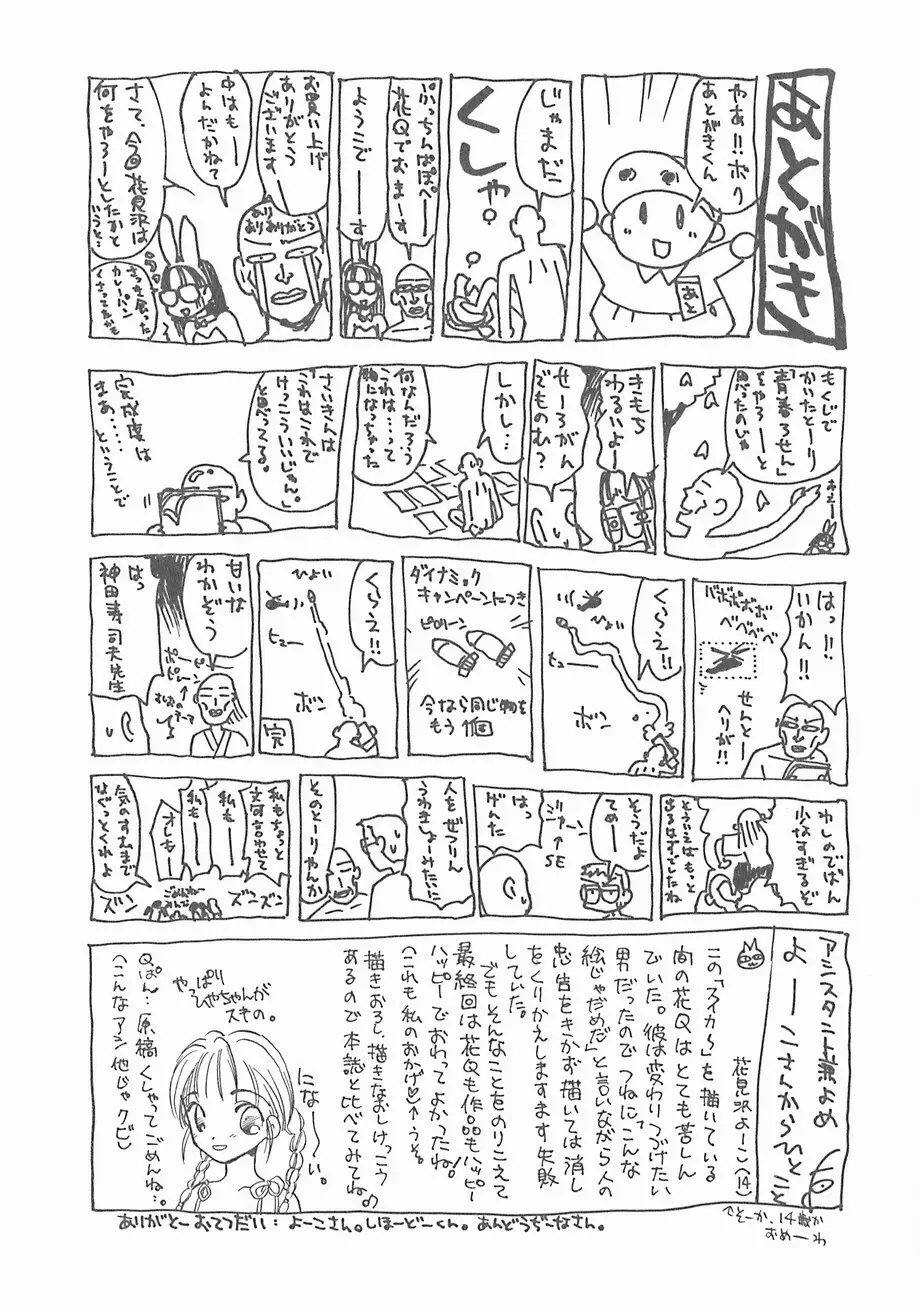 あとがき
やあ!!ボク
あとがきくん
あと
じゃまだ
くしゃ
ぷっちんぱぽぺーー
花Qでおまーす
ようこでーーす
お買い上げ
ありがとう
ございます
中はもーー
よんだかねて
あり
ありありがとう
さて、今回花見沢は
何をやろーとしたかと
いうと…
さっき食った
カレーパン
くさってたかも
もくじで
かいたとーり
「青春ろせん」
をやろーーと
思ったのじゃ
おえー
きもち
わるいよー
せーろがん
でものむ?
しかし…
何なんだろう
これは…って
物になっちゃった
さいきんは
「これはこれで
けっこういいじゃん。」
と思ってる。
完成度は
まあ‥‥
ということで
はっ!!
いかん!!
バボボボボ
ベベベベ
せんとー
ヘリが!!
くらえ!!
ひょい
ヒュー
ボン
ダイナミック
キャンペーンにつき
ピロリーン
今なら同じ物を
もう1個
くらえ!!
ひょい
ヒュー
ボン
完
甘いな
わかぞう
はっ
神田寿司夫先生
わしのでばん
少なすぎるぞ
とういうはもっと
出るはずでしたね
そうだよ
てめー
ジャーン
↑
SE
はっ
げんた
人をぜつりん
うわきしょーみたいに
そのとーりやんか
私もちょっと
文句言わせて
私もーー
私もーー
オレもーー
気のすむまで
なぐっとくれよ
ごめんねー
みんな
ズンズン
ズン
アシスタント兼よめ
よーーこさんからひとこと
花見沢よーこ(14)
この「スイカ〜」を描いている
間の花Qはとても苦しん
でいた。彼は変わりつづけたい
男だったのでつねに「こんな
絵じゃだめだ」と言いながら人の
忠告をきかず描いては消し
をくりかえしますます失敗
していた。
でもそんなことをのりこえて
最終回は花Qも作品もハッピー
ハッピーでおわってよかったね!
(これも私のおかげ♡↑うそ。
描きおろし、描きなおしけっこう
あるので本誌と比べてみてね♪
にな〜〜い。
やっぱり
ひやちゃんが
スキの。
Qぱん…原稿くしゃってごめんね…。
(こんなアシ他じゃクビ)
↑そーか、14歳か
おめーわ
ありがとーおてつだい:よーこさん。しほーどーくん。あんどうぢーなさん。